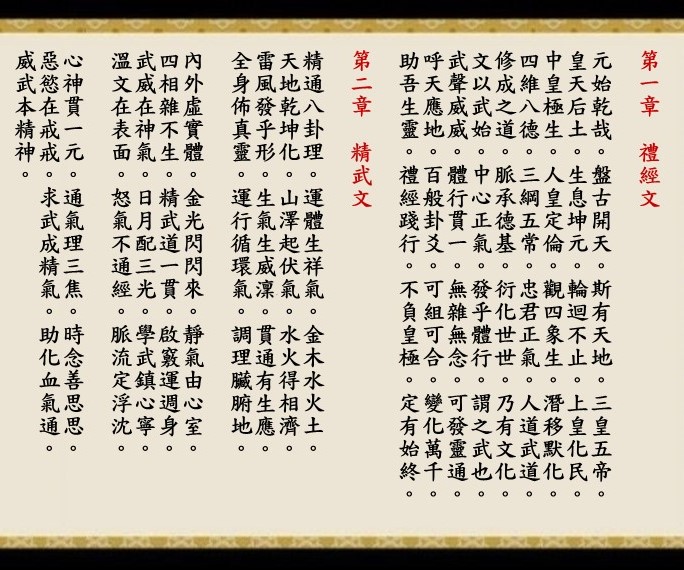 第一章　禮經文
元始乾哉。盤古開天。斯有天地。三皇五帝。
皇天后土。生息坤元。輪迴不止。上皇化民。
中皇極生。人皇定倫。觀四象生。潛移默化。
四維八德。三綱五常。忠君正氣。人道武道。
修成之道。脈承德基。衍化世世。乃有文化。
文以武始。中心正氣。發乎體行。謂之武也。
武聲威威。體行貫一。無雜無念。可發靈通。
呼天應地。百般卦爻。可組可合。變化萬千。
助吾生靈。禮經踐行。不負皇極。定有始終。
第二章　精武文
精通八卦理。運體生祥氣。金木水火土。
天地乾坤化。山澤起伏氣。水火得相濟。
雷風發乎形。生氣生威凜。貫通有生應。
全身佈真靈。運行循環氣。調理臟腑地。
內外虛實體。金光閃閃來。靜氣由心室。
四相雜不生。精武道一貫。啟竅運週身。
武威在神氣。日月配三光。學武鎮心寧。
溫文在表面。怒氣不通經。脈流定浮沈。
心神貫一元。通氣理三焦。時念善思思。
惡慾在戒戒。求武成精氣。助化血氣通。
威武本精神。